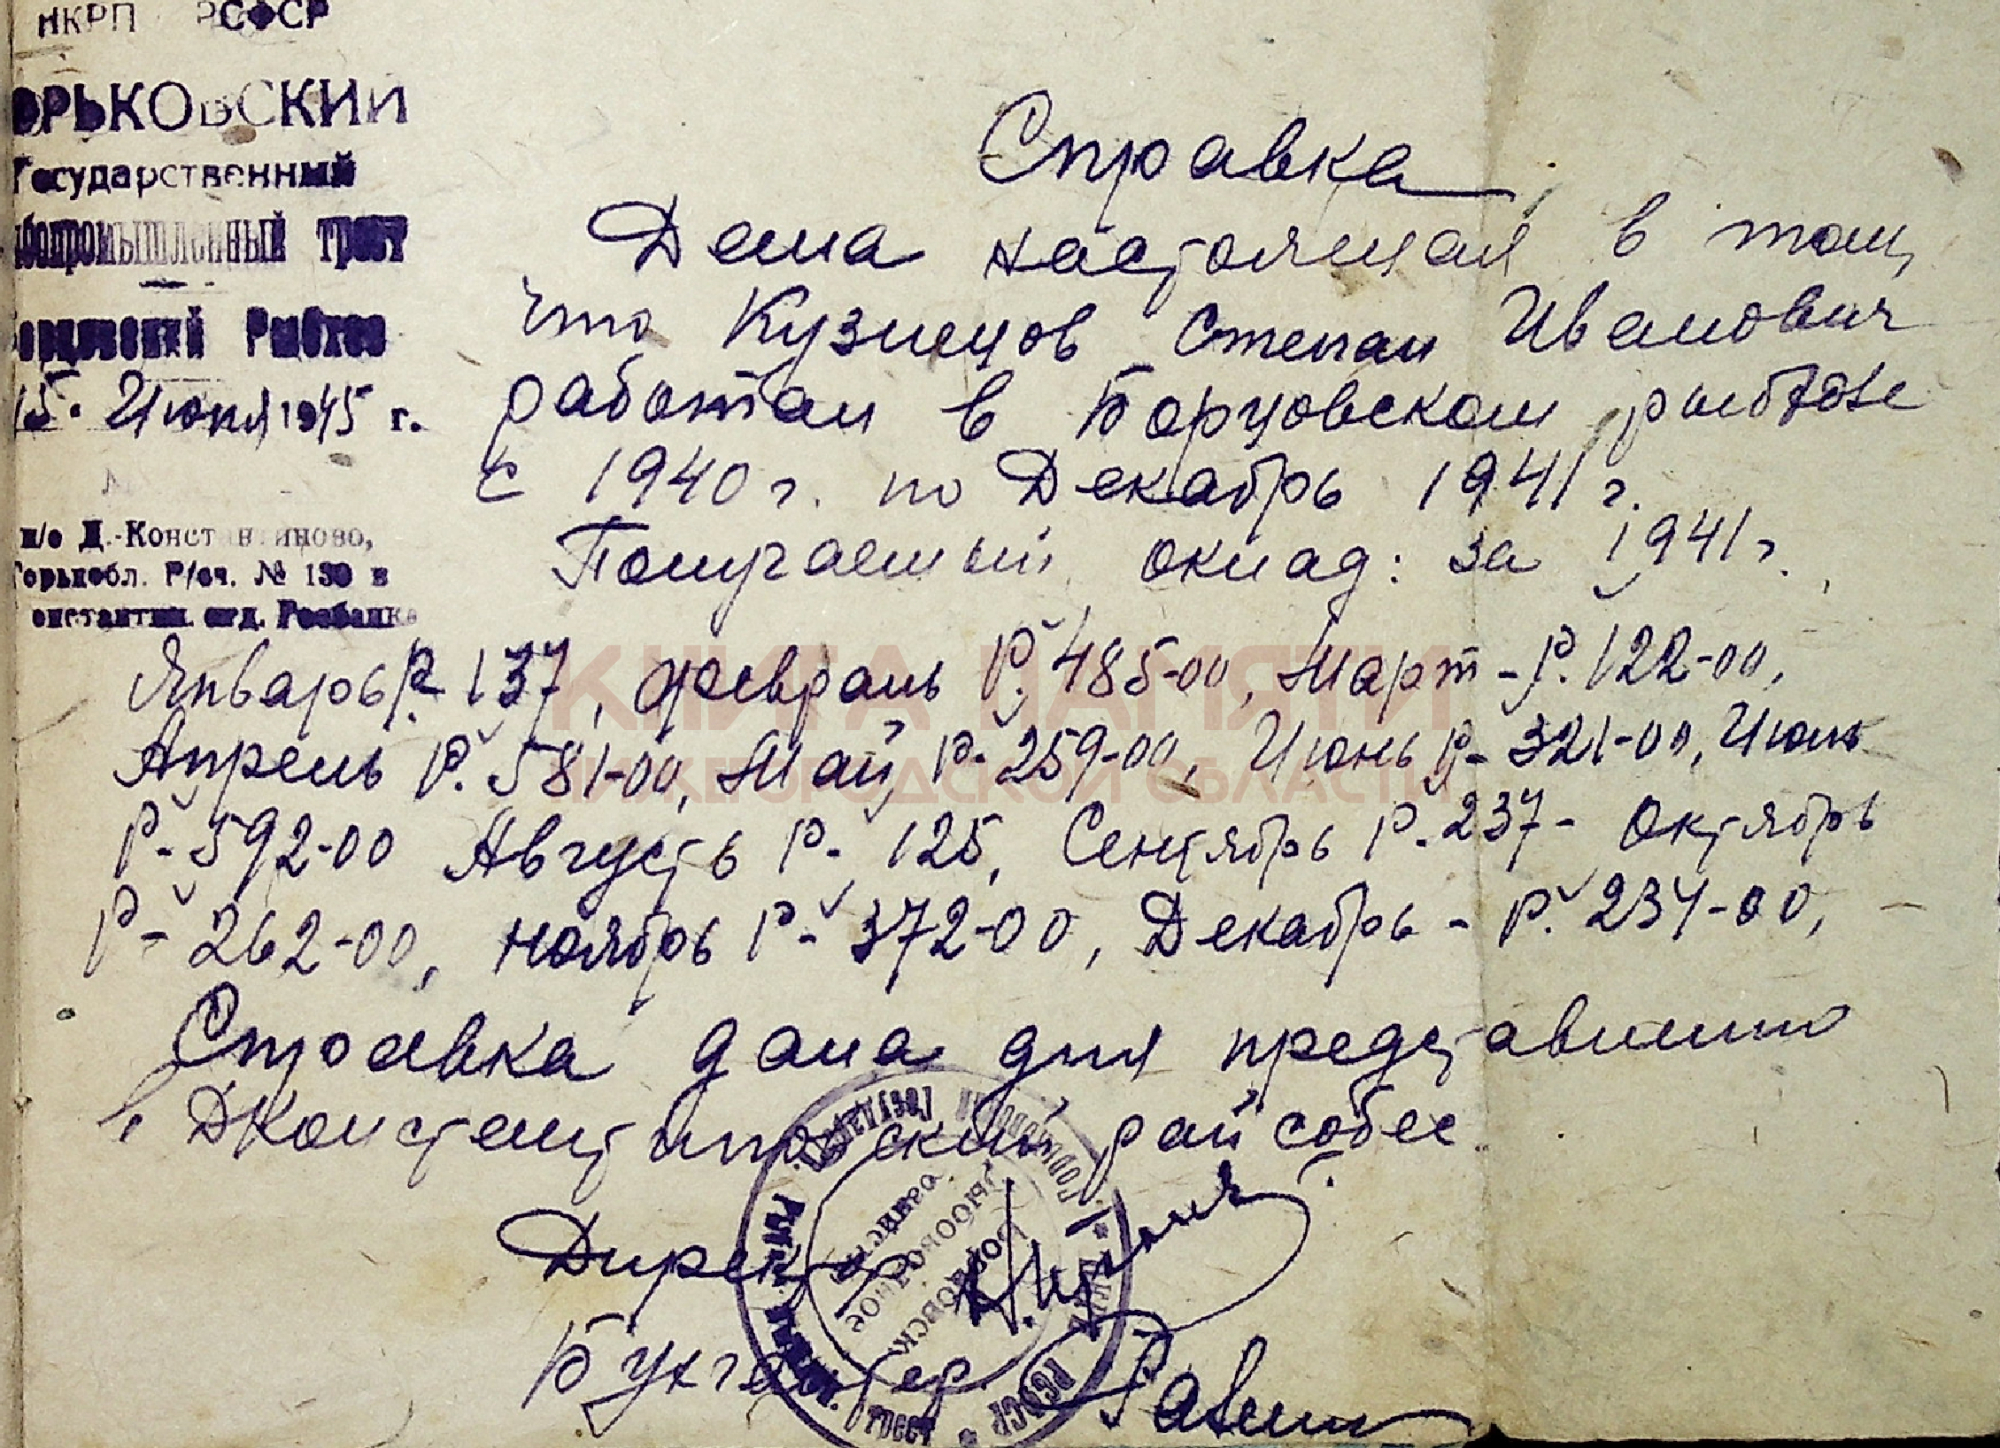 НКРП РСФСР
ОРЬКОВСКИЙ
Государственный
бопромышленный трест
орцовский Рыбхоз
15. Июня 1945 г.
п/о Д.-Константиново,
Горькобл. Р/сч. № 130 в
онстантин. отд. Росбанка
Справка
Дана настоящая в том,
что Кузнецов Степан Иванович
работал в Борцовском рыбхозе
с 1940 г. по Декабрь 1941 г.
Получаемый оклад: за 1941 г.
Январь Р. 137, февраль Р. 485-00, Март - Р. 122-00,
Апрель Р. 581-00, Май Р- 259-00, Июнь Р- 321-00, Июль
Р- 592-00 Августь Р. 125, Сентябрь Р. 237- Октябрь
Р- 262-00, ноябрь Р- 372-00, Декабрь - Р. 234-00,
Справка дана для представлению
в ДКонстантиновский райсобес.
Директор
Бухгалтер
КНИГА ПАМЯТИ
НИЖЕГОРОДСКОЙ ОБЛАСТИ
РСФСР
трест